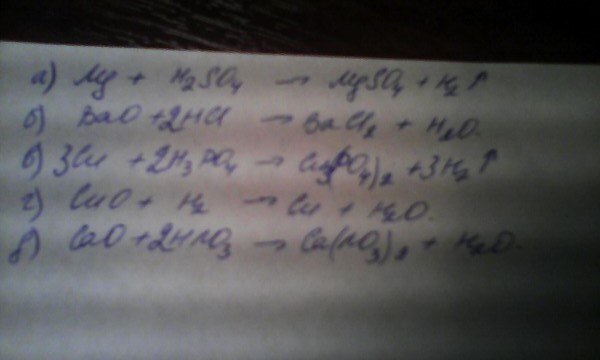 а) Mg + H₂SO₄ → MgSO₄ + H₂↑
б) BaO + 2HCl → BaCl₂ + H₂O.
в) 3Cu + 2H₃PO₄ → Cu₃(PO₄)₂ + 3H₂↑
г) CuO + H₂ → Cu + H₂O.
д) CaO + 2HNO₃ → Ca(NO₃)₂ + H₂O.